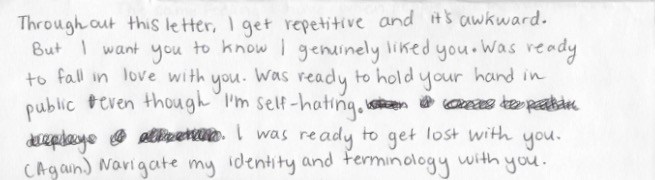 Throughout this letter, I get repetitive and it's awkward.
But I want you to know I genuinely liked you. Was ready
to fall in love with you. Was ready to hold your hand in
public even though I'm self-hating.
I was ready to get lost with you.
(Again) Navigate my identity and terminology with you.